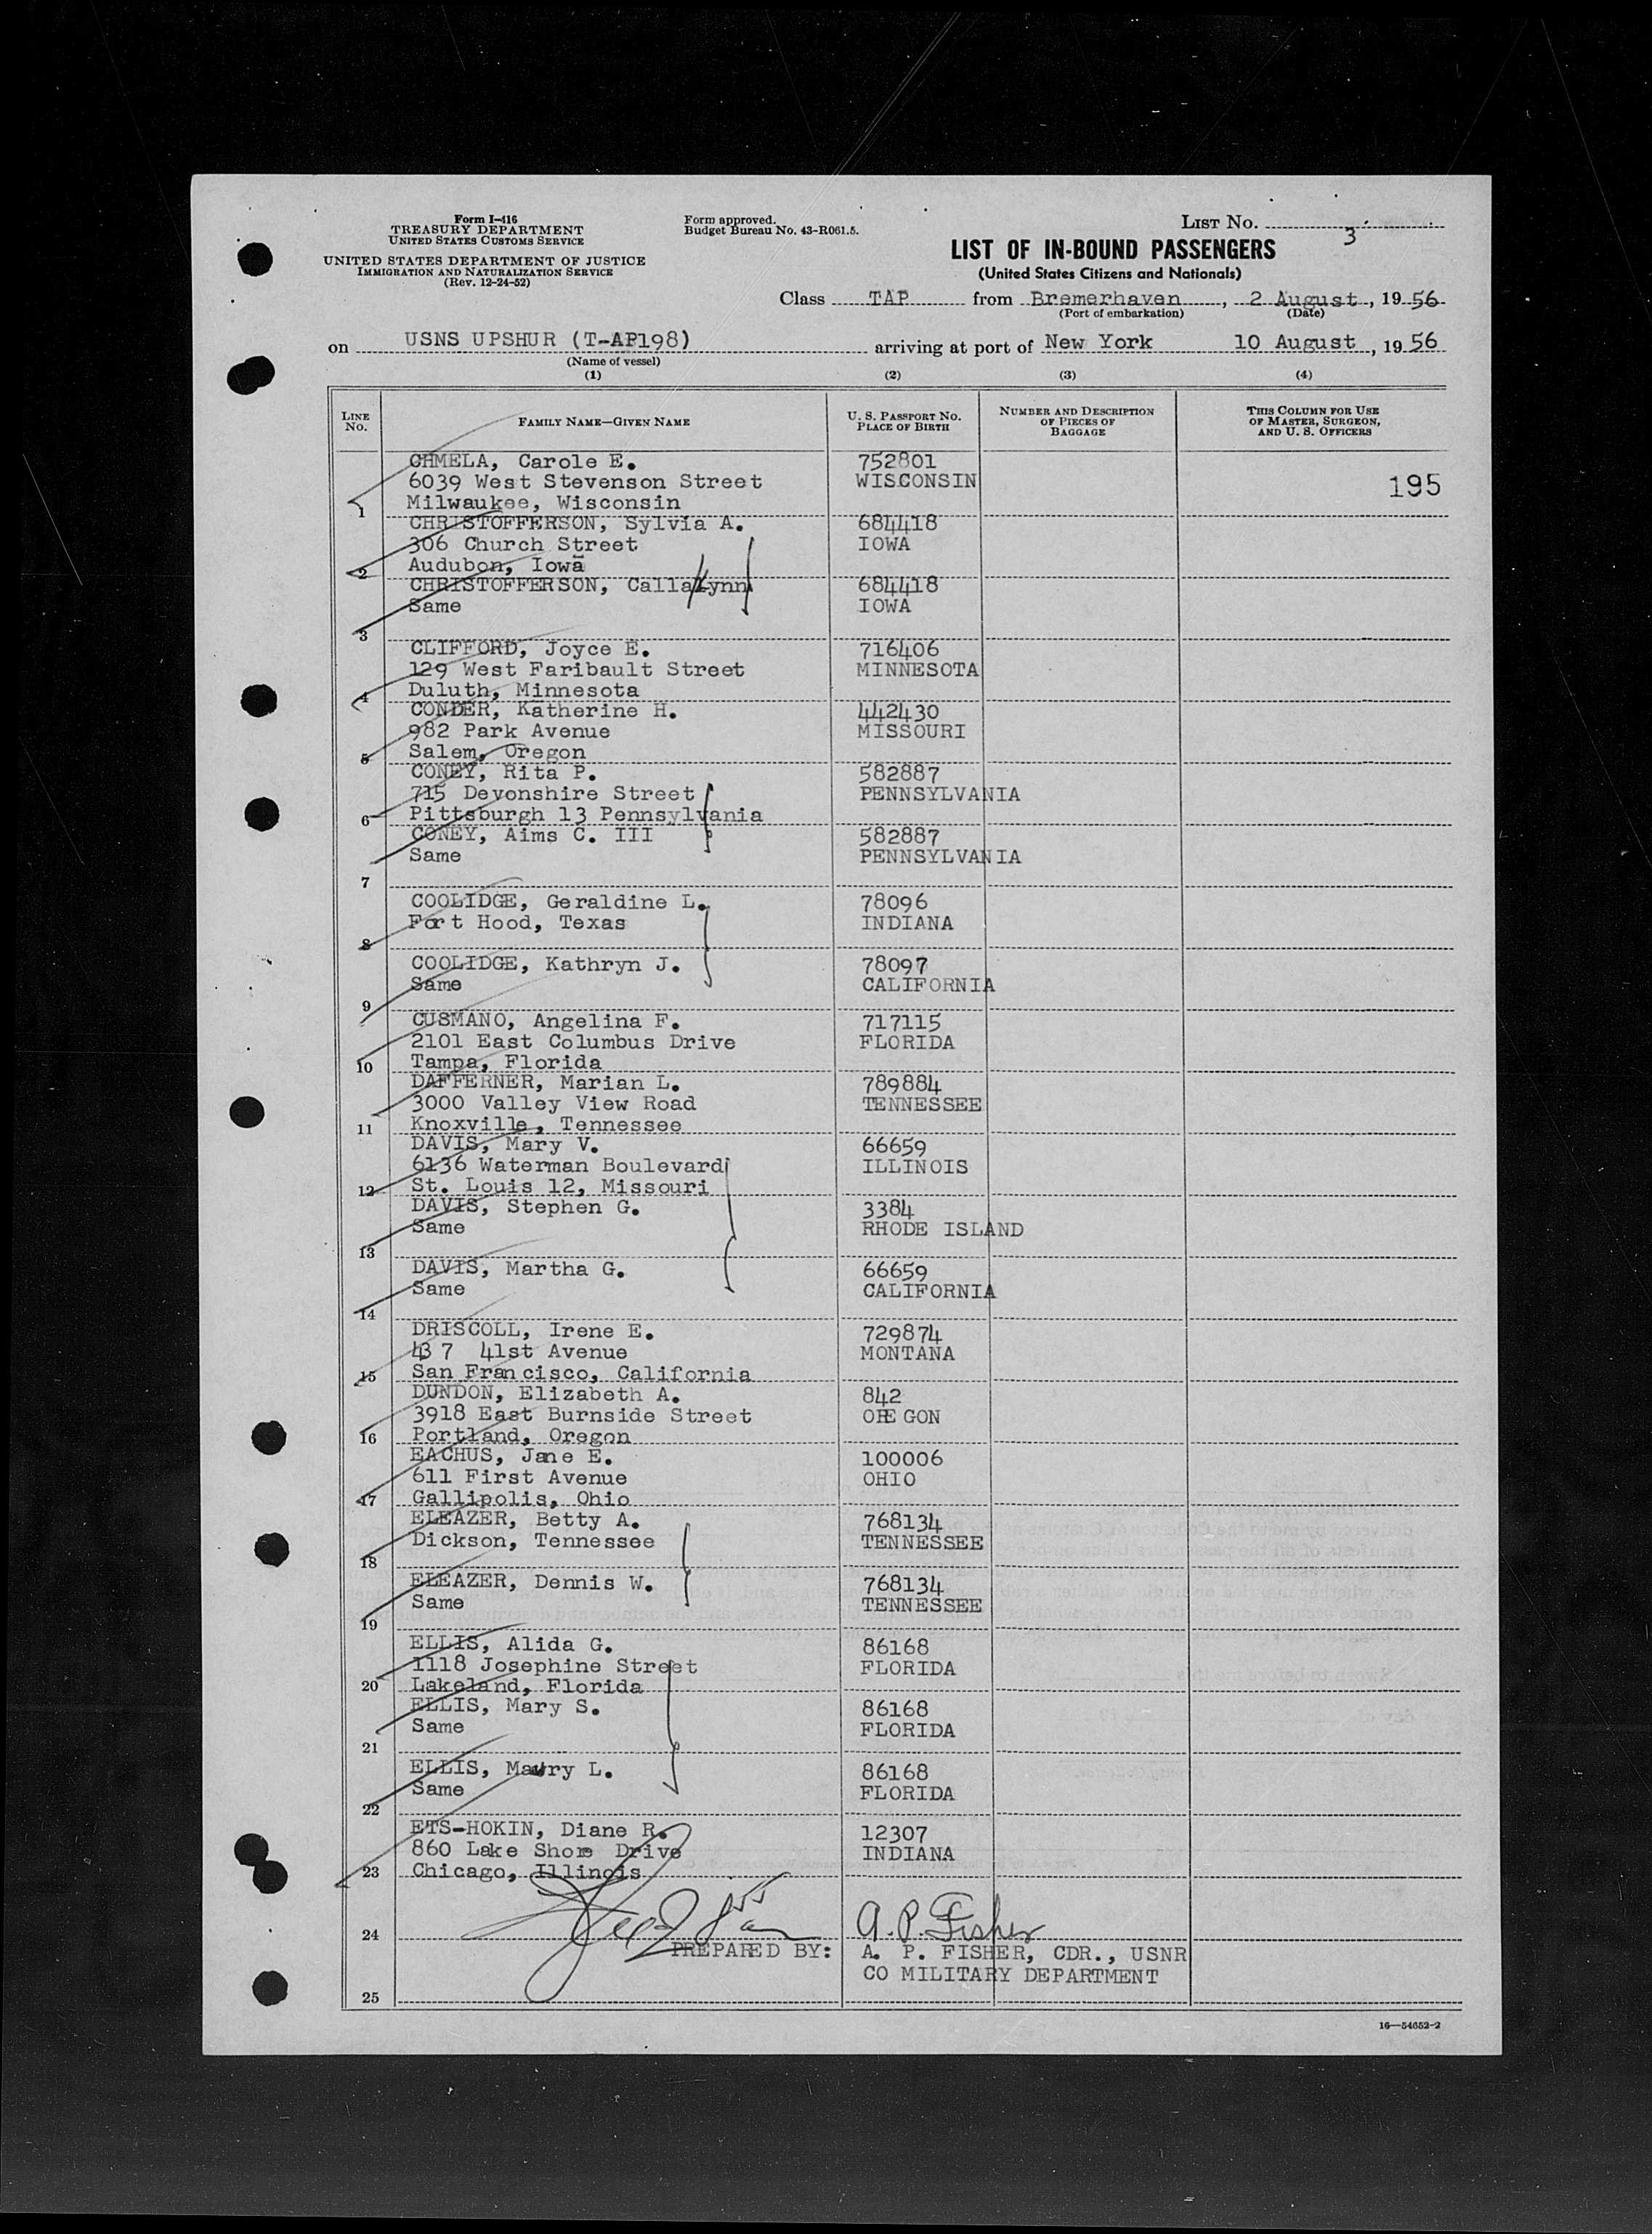 Form I-416
TREASURY DEPARTMENT
UNITED STATES CUSTOMS SERVICE
UNITED STATES DEPARTMENT OF JUSTICE
IMMIGRATION AND NATURALIZATION SERVICE
(Rev. 12-24-52)
Form approved.
Budget Bureau No. 43-R061.5.
LIST NO. 3
LIST OF IN-BOUND PASSENGERS
(United States Citizens and Nationals)
Class TAP from Bremerhaven, 2 August, 1956
(Port of embarkation) (Date)
on USNS UPSHUR (T-AP198) arriving at port of New York 10 August, 1956
(Name of vessel)
(1) (2) (3) (4)
LINE NO. FAMILY NAME—GIVEN NAME U. S. PASSPORT NO. PLACE OF BIRTH NUMBER AND DESCRIPTION OF PIECES OF BAGGAGE THIS COLUMN FOR USE OF MASTER, SURGEON, AND U. S. OFFICERS
CHMELA, Carole E. 752801
6039 West Stevenson Street WISCONSIN 195
1 Milwaukee, Wisconsin
CHRISTOFFERSON, Sylvia A. 684418
306 Church Street IOWA
2 Audubon, Iowa
CHRISTOFFERSON, Calla Lynn 684418
Same IOWA
3
CLIFFORD, Joyce E. 716406
129 West Faribault Street MINNESOTA
4 Duluth, Minnesota
CONDER, Katherine H. 442430
982 Park Avenue MISSOURI
5 Salem, Oregon
CONEY, Rita P. 582887
715 Devonshire Street PENNSYLVANIA
6 Pittsburgh 13 Pennsylvania
CONEY, Aims C. III 582887
Same PENNSYLVANIA
7
COOLIDGE, Geraldine L. 78096
Fort Hood, Texas INDIANA
8
COOLIDGE, Kathryn J. 78097
Same CALIFORNIA
9
CUSMANO, Angelina F. 717115
2101 East Columbus Drive FLORIDA
10 Tampa, Florida
DAFFERNER, Marian L. 789884
3000 Valley View Road TENNESSEE
11 Knoxville, Tennessee
DAVIS, Mary V. 66659
6136 Waterman Boulevard ILLINOIS
12 St. Louis 12, Missouri
DAVIS, Stephen G. 3384
Same RHODE ISLAND
13
DAVIS, Martha G. 66659
Same CALIFORNIA
14
DRISCOLL, Irene E. 729874
437 41st Avenue MONTANA
15 San Francisco, California
DUNDON, Elizabeth A. 842
3918 East Burnside Street OREGON
16 Portland, Oregon
EACHUS, Jane E. 100006
611 First Avenue OHIO
17 Gallipolis, Ohio
ELEAZER, Betty A. 768134
Dickson, Tennessee TENNESSEE
18
ELEAZER, Dennis W. 768134
Same TENNESSEE
19
ELLIS, Alida G. 86168
1118 Josephine Street FLORIDA
20 Lakeland, Florida
ELLIS, Mary S. 86168
Same FLORIDA
21
ELLIS, Maury L. 86168
Same FLORIDA
22
ETS-HOKIN, Diane R. 12307
860 Lake Shore Drive INDIANA
23 Chicago, Illinois
24 A. P. Fisher
PREPARED BY: A. P. FISHER, CDR., USNR
CO MILITARY DEPARTMENT
25
16—54652-2